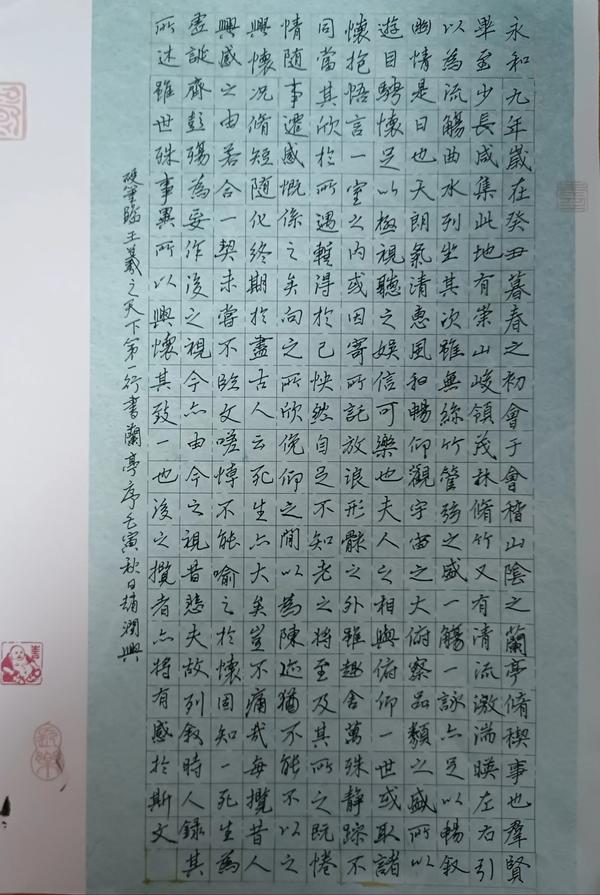 永和九年歲在癸丑暮春之初會于會稽山陰之蘭亭脩禊事也羣賢
畢至少長咸集此地有崇山峻領茂林脩竹又有清流激湍暎左右引
以為流觴曲水列坐其次雖無絲竹管弦之盛一觴一詠亦足以暢叙
幽情是日也天朗氣清惠風和暢仰觀宇宙之大俯察品類之盛所以
遊目騁懷足以極視聽之娛信可樂也夫人之相與俯仰一世或取諸
懷抱悟言一室之內或因寄所託放浪形骸之外雖趣舍萬殊静躁不
同當其欣於所遇暫得於己怏然自足不知老之將至及其所之既惓
情隨事遷感慨係之矣向之所欣俛仰之間以為陳迹猶不能不以之
興懷况脩短隨化終期於盡古人云死生亦大矣豈不痛哉每攬昔人
興感之由若合一契未嘗不臨文嗟悼不能喻之於懷固知一死生為
虛誕齊彭殤為妄作後之視今亦由今之視昔悲夫故列叙時人錄其
所述雖世殊事異所以興懷其致一也後之攬者亦將有感於斯文
硬筆臨王羲之天下第一行書蘭亭序壬寅秋日趙潤興